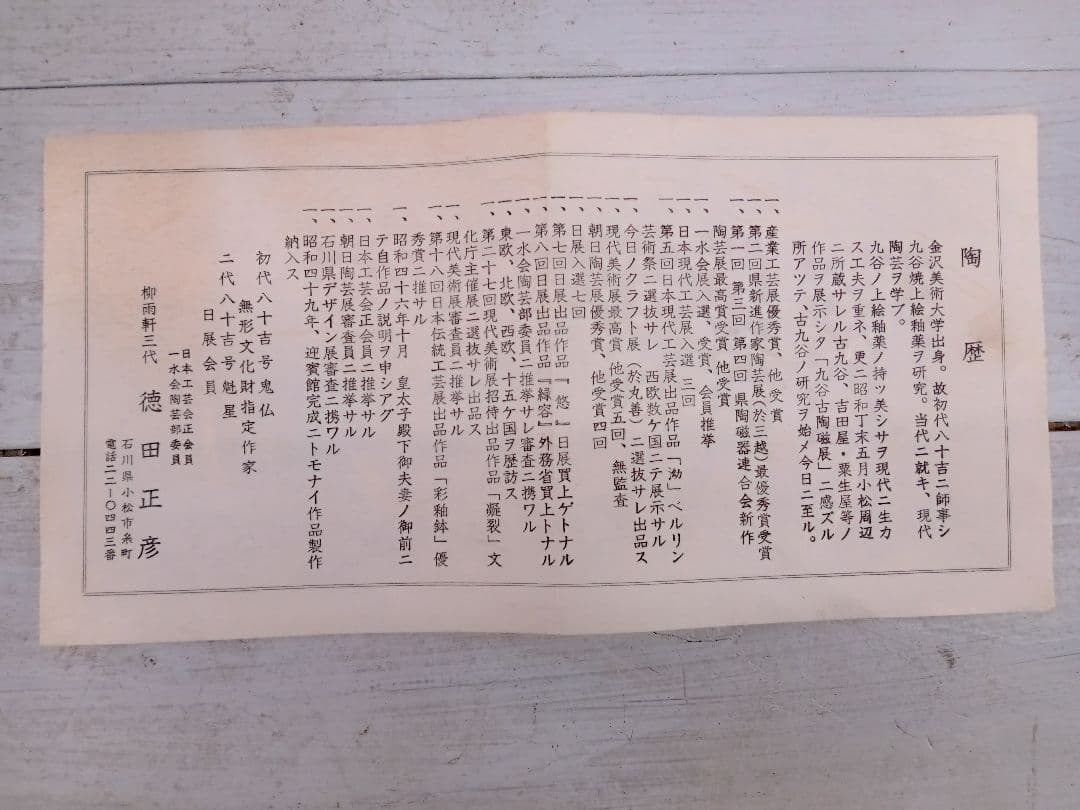 陶歴
金沢美術大学出身。故初代八十吉ニ師事シ
九谷焼上絵釉薬ヲ研究。当代ニ就キ、現代
陶芸ヲ学ブ。
九谷ノ上絵釉薬ノ持ツ美シサヲ現代ニ生カ
ス工夫ヲ重ネ、更ニ昭和丁末五月小松周辺
ニ所蔵サレル古九谷、吉田屋・粟生屋等ノ
作品ヲ展示シタ「九谷古陶磁展」ニ感ズル
所アツテ、古九谷ノ研究ヲ始メ今日ニ至ル。
一、産業工芸展優秀賞、他受賞
一、第二回県新進作家陶芸展(於三越)最優秀賞受賞
一、第一回、第三回、第四回、県陶磁器連合会新作
陶芸展最高賞受賞、他受賞
一、一水会展入選、受賞、会員推挙
一、日本現代工芸展入選 三回
一、第五回日本現代工芸展出品作品「泑」ベルリン
芸術祭ニ選抜サレ 西欧数ケ国ニテ展示サル
一、今日ノクラフト展(於丸善)ニ選抜サレ出品ス
一、現代美術展最高賞、他受賞五回、無監査
一、朝日陶芸展優秀賞、他受賞四回
一、日展入選七回
一、第七回日展出品作品『悠』日展買上ゲトナル
一、第八回日展出品作品『緑容』外務省買上トナル
一、一水会陶芸部委員ニ推挙サレ審査ニ携ワル
一、東欧、北欧、西欧、十五ケ国ヲ歴訪ス
一、第二十七回現代美術展招待出品作品「凝裂」文
化庁主催展ニ選抜サレ出品ス
一、現代美術展審査員ニ推挙サル
一、第十八回日本伝統工芸展出品作品「彩釉鉢」優
秀賞ニ推サル
一、昭和四十六年十月 皇太子殿下御夫妻ノ御前ニ
テ自作品ノ説明ヲ申シアグ
一、日本工芸会正会員ニ推挙サル
一、朝日陶芸展審査員ニ推挙サル
一、石川県デザイン展審査ニ携ワル
一、昭和四十九年、迎賓館完成ニトモナイ作品製作
納入ス
初代八十吉号鬼仏
無形文化財指定作家
二代八十吉号魁星
日展会員
日本工芸会正会員
一水会陶芸部委員
柳雨軒三代 徳田正彦
石川県小松市糸町
電話二二-〇四四三番